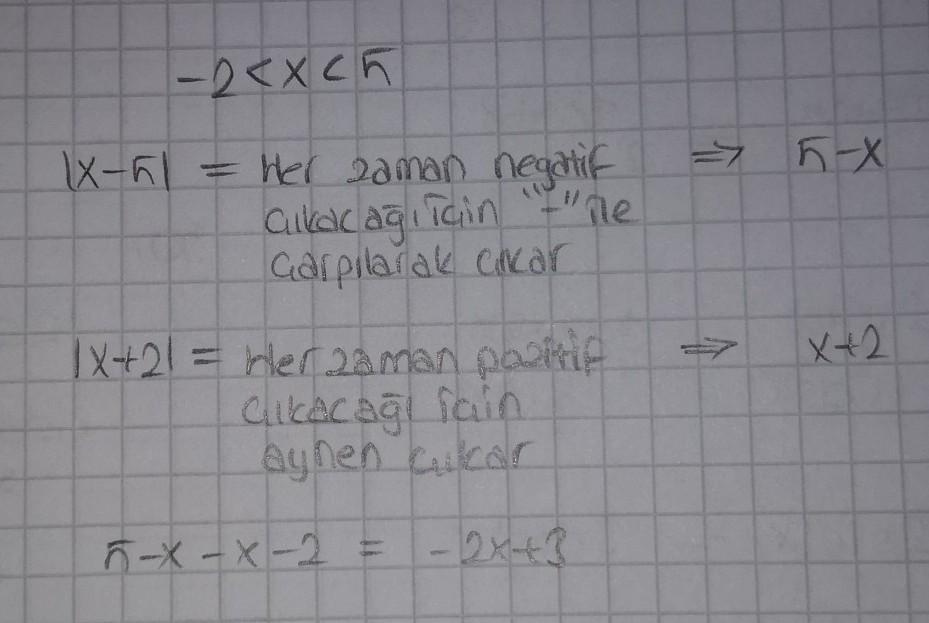 -2 < x < 5
|x-5| = Her zaman negatif ⇒ 5-x
çıkacağı için "-" ile
çarpılarak çıkar
|x+2| = Her zaman pozitif ⇒ x+2
çıkacağı için
aynen çıkar
5-x-x-2 = -2x+3